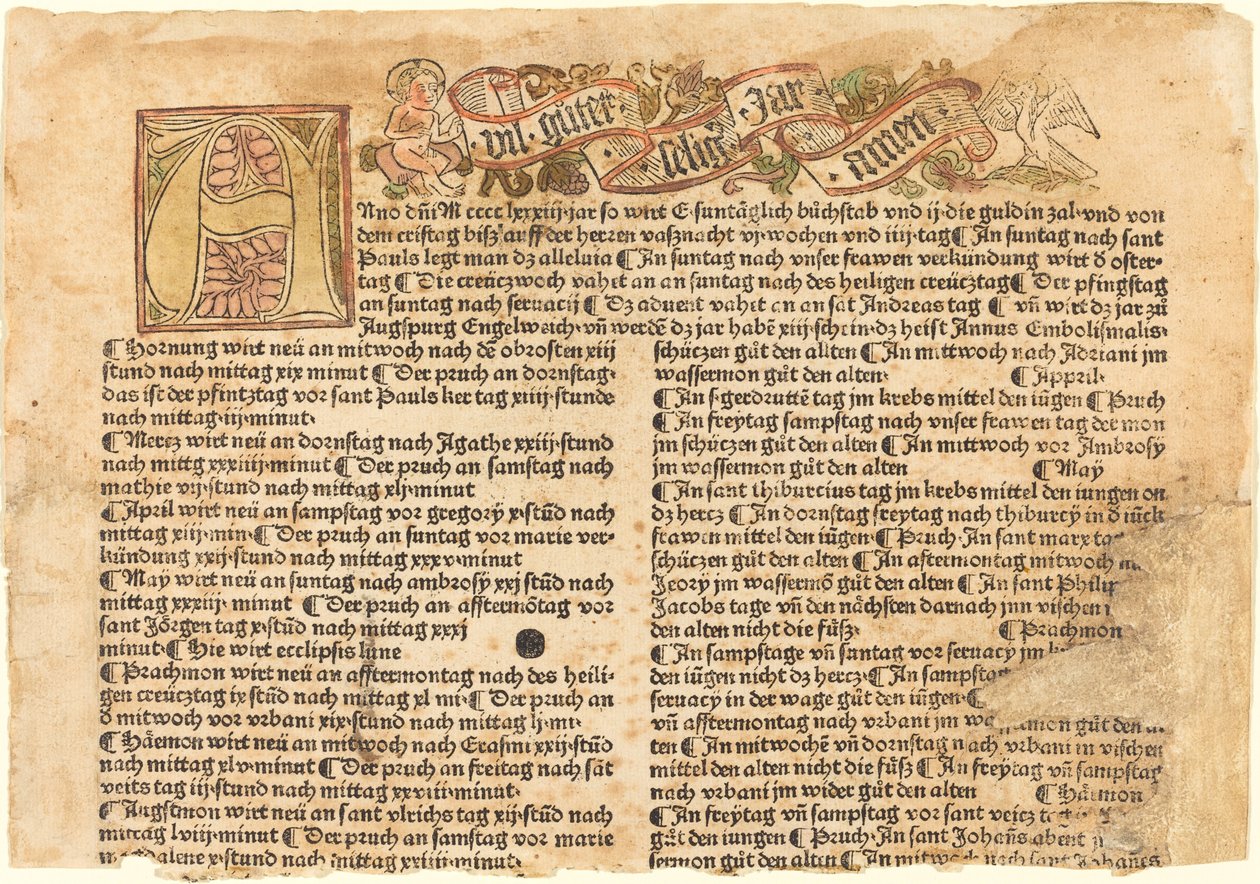 vil · gůter · selig · Jar · amen
ANno dñi M cccc lxxxiij · jar so wirt E · suntäglich bůchstab vnd ij · die guldin zal · vnd von
dem cristag bisz auff der herren vasznacht vj · wochen vnd iiij · tag ¶ An suntag nach sant
Pauls legt man dz alleluia ¶ An suntag nach vnser frawen verkündung wirt d oster-
tag ¶ Die creüczwoch vahet an an suntag nach des heiligen creücztag ¶ Der pfingstag
an suntag nach seruacij ¶ Dz aduent vahet an an sāt Andreas tag ¶ vñ wirt dz jar zů
Augspurg Engelweich · vñ werdē dz jar habē xiij · schein · dz heist Annus Embolismalis ·
¶ Hornung wirt neü an mitwoch nach dē obrosten xiij
stund nach mittag xix minut ¶ Der pruch an dornstag ·
das ist der pfintztag vor sant Pauls ker tag xiiij · stunde
nach mittag · iij · minut ·
¶ Mercz wirt neü an dornstag nach Agathe xxiij · stund
nach mittg xxxiiij · minut ¶ Der pruch an samstag nach
mathie vij · stund nach mittag xlj · minut
¶ April wirt neü an sampstag vor gregorÿ x · stūd nach
mittag xiij · min · ¶ Der pruch an suntag vor marie ver-
kündung xxij · stund nach mittag xxxv · minut
¶ May wirt neü an suntag nach ambrosÿ xxj stūd nach
mittag xxxiij · minut ¶ Der pruch an afftermōtag vor
sant Jörgen tag x · stūd nach mittag xxxj
minut · ¶ Hie wirt ecclipsis lune
¶ Prachmon wirt neü an afftermontag nach des heili-
gen creücztag ix stūd nach mittag xl mi · ¶ Der pruch an
d mitwoch vor vrbani xix · stund nach mittag lj · mi ·
¶ Häemon wirt neü an mitwoch nach Erasmi xxij · stūd
nach mittag xlv · minut ¶ Der pruch an freitag nach sāt
veits tag iij · stund nach mittag xxviii · minut ·
¶ Augstmon wirt neü an sant vlrichs tag xij · stūd nach
mittag lviij · minut ¶ Der pruch an samstag vor marie
magdalene x · stund nach mittag xxiiij · minut ·
schüczen gůt den alten ¶ An mittwoch nach Adriani jm
wassermon gůt den alten · ¶ Appril ·
¶ An s · gerdruttē tag jm krebs mittel den iūgen ¶ Pruch
¶ An freytag sampstag nach vnser frawen tag der mon
jm schüczen gůt den alten ¶ An mittwoch vor Ambrosÿ
jm wassermon gůt den alten ¶ Maÿ
¶ An sant thiburcius tag jm krebs mittel den iungen on
dz hercz ¶ An dornstag freytag nach thiburcÿ in d iūck
frawen mittel den iūgen ¶ Pruch · An sant marx tag
schüczen gůt den alten ¶ An aftermontag mitwoch
Jeorÿ jm wassermō gůt den alten ¶ An sant Philip
Jacobs tage vñ den nächsten darnach jnn vischen
den alten nicht die füsz · ¶ Prachmon
¶ An sampstage vñ suntag vor seruacÿ jm
den iūgen nicht dz hercz · ¶ An sampstag
seruacÿ in der wage gůt den iūgen · ¶
vñ afftermontag nach vrbani jm gůt den
ten ¶ An mitwochē vñ dornstag nach vrbani in vischen
mittel den alten nicht die füsz ¶ An freÿtag vñ sampstag
nach vrbani jm wider gůt den alten ¶ Häemon
¶ An freÿtag vñ sampstag vor sant veicz
gůt den iungen ¶ Pruch · An sant Johañs abent
sermon gůt den alten ¶ An mitwoch nach sant Johañes